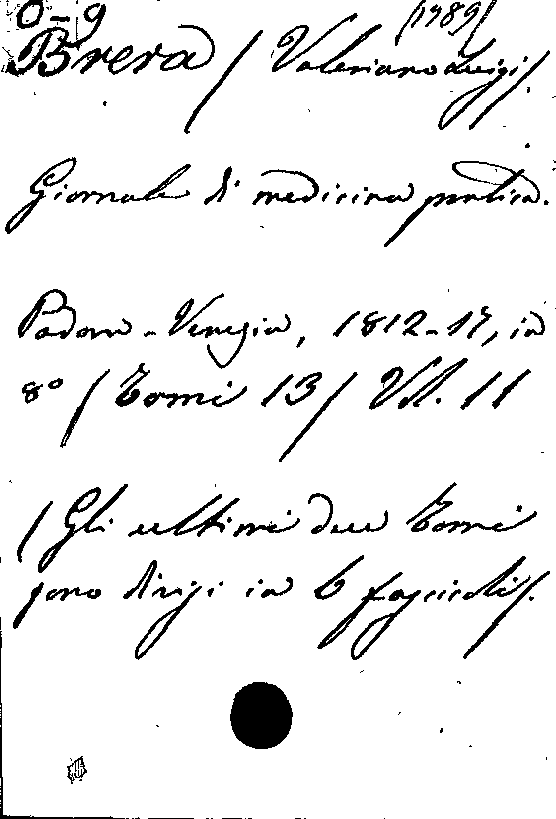 O-9 (1789)
Brera / Valeriano Luigi /.
Giornale di medicina pratica.
Padova - Venezia, 1812-17, in
8° / Tomi 13 / Vol. 11
/ Gli ultimi due Tomi
sono divisi in 6 fascicoli /.